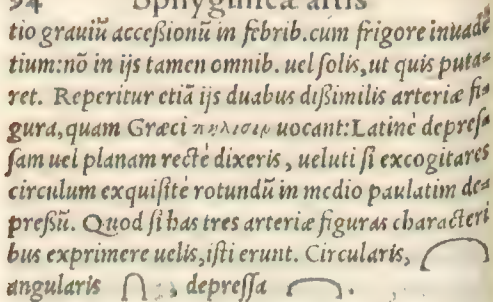 94 Sphygmicæ artis
tio grauiũ acceßionũ in febrib. cum frigore inuadẽ
tium: nõ in ijs tamen omnib. uel solis, ut quis puta=
ret. Reperitur etiã ijs duabus dißimilis arteriæ fi=
gura, quam Græci uocant: Latinè depres=
sam uel planam rectè dixeris, ueluti si excogitares
circulum exquisitè rotundũ in medio paulatim de=
preßũ. Quod si has tres arteriæ figuras characteri
bus exprimere uelis, isti erunt. Circularis,
angularis , depressa .